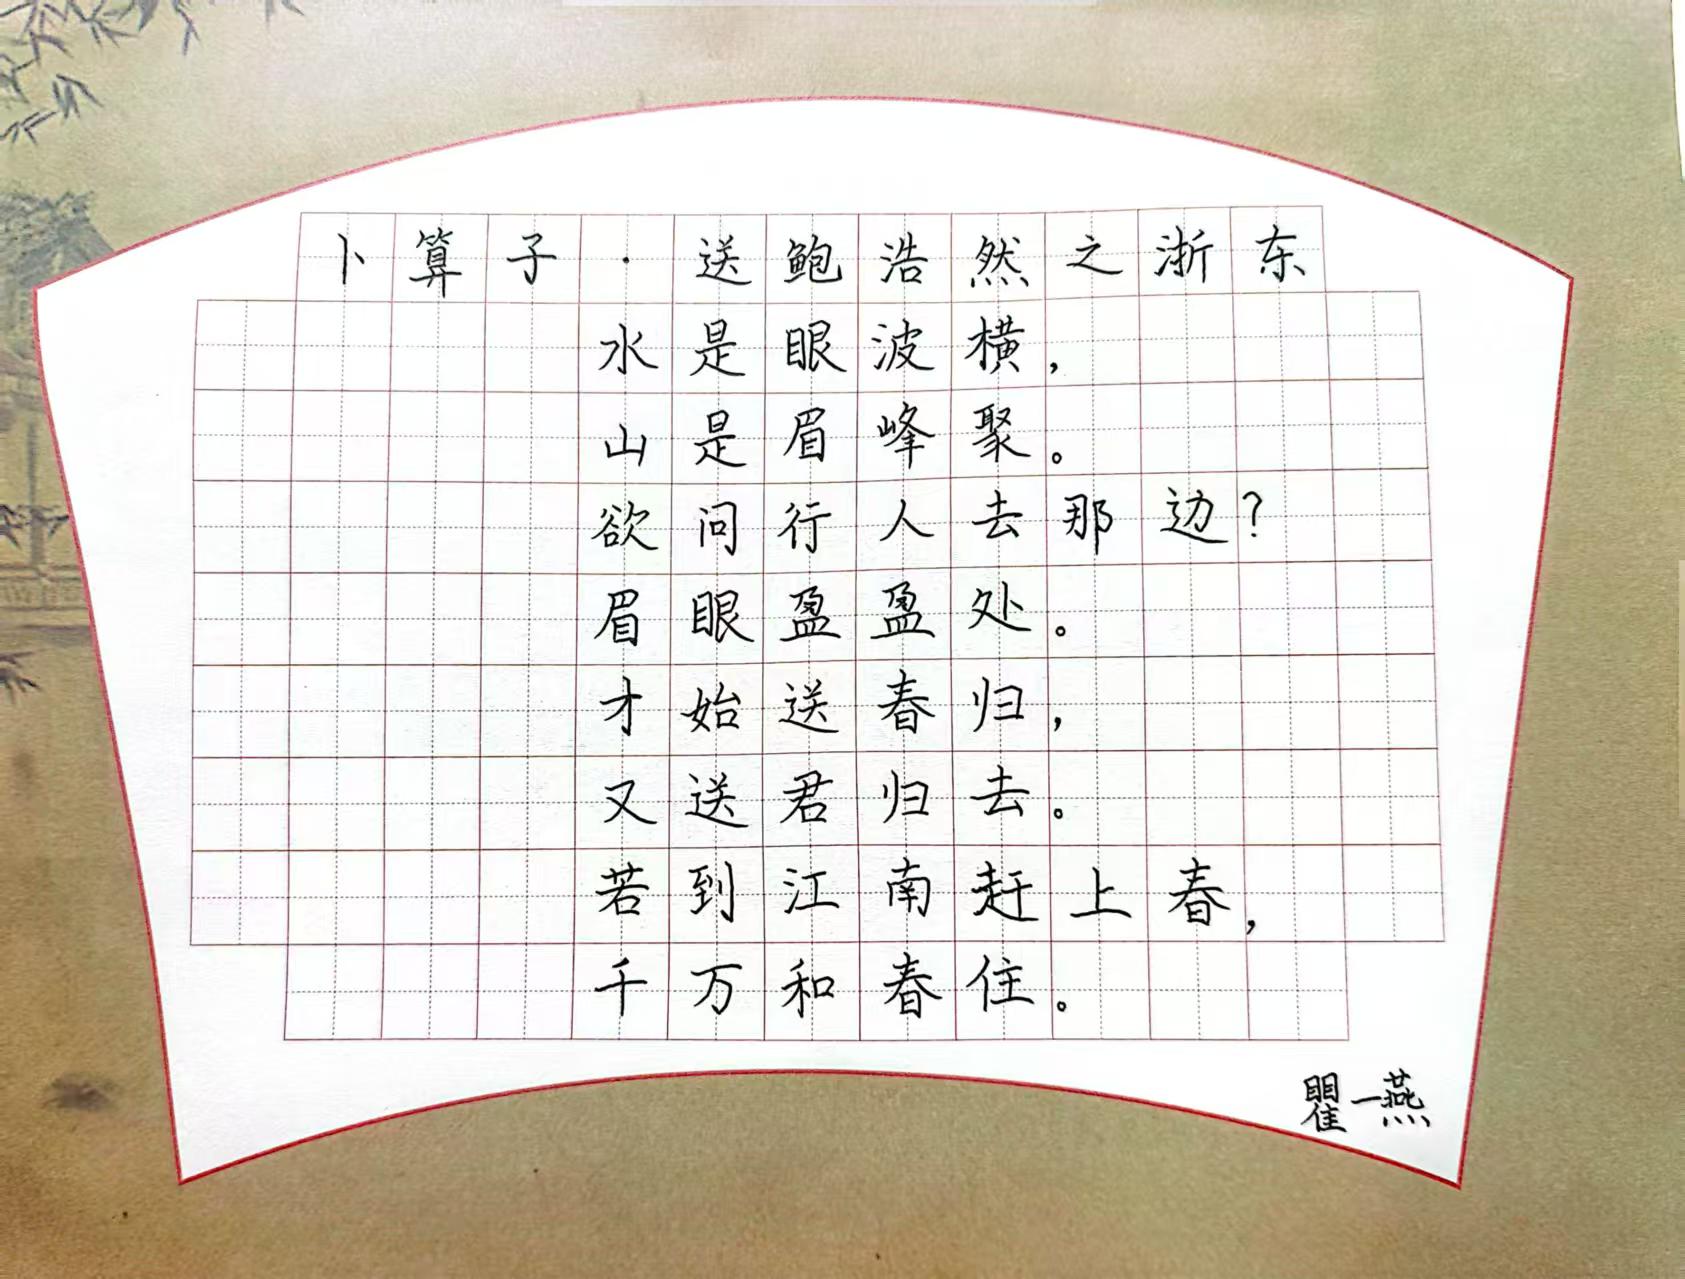 卜算子·送鲍浩然之浙东
水是眼波横，
山是眉峰聚。
欲问行人去那边？
眉眼盈盈处。
才始送春归，
又送君归去。
若到江南赶上春，
千万和春住。
瞿一燕